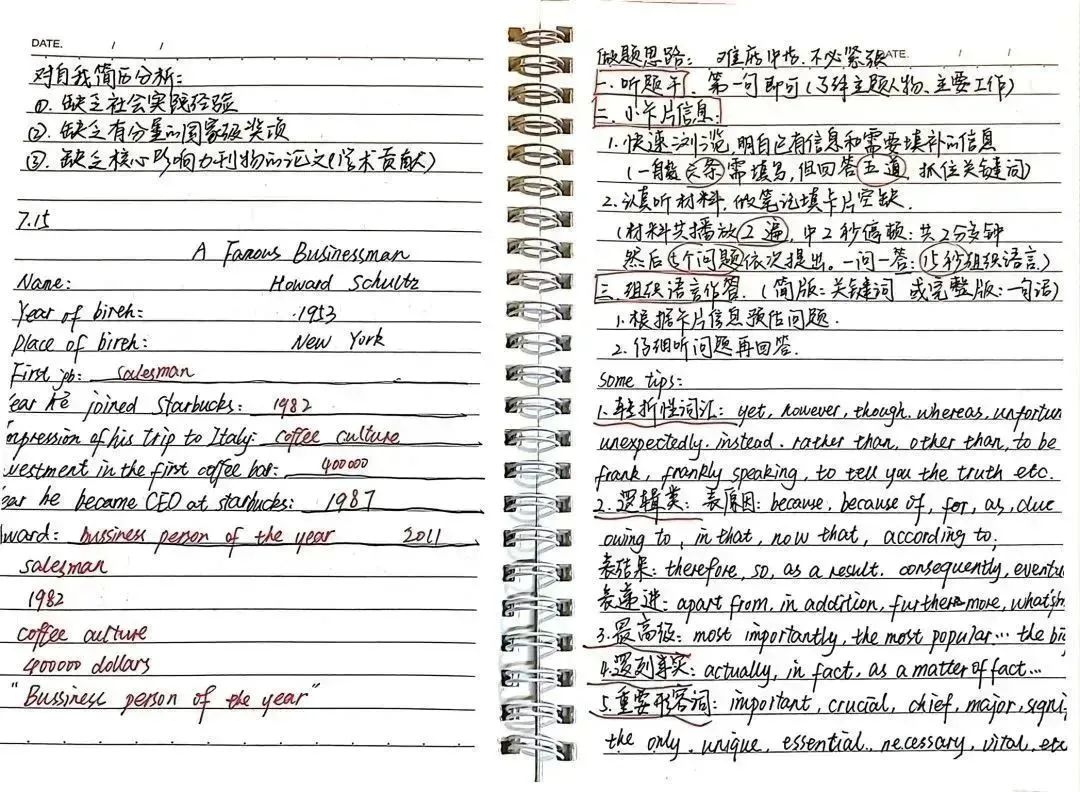 DATE. / /
对自我简历分析:
①. 缺乏社会实践经验
②. 缺乏有分量的国家级奖项
③. 缺乏核心影响力刊物的论文(学术贡献)
7.15
A Famous Businessman
Name: Howard Schultz
Year of birth: 1953
place of birth: New York
First job: salesman
ear he joined Starbucks: 1982
mpression of his trip to Italy: coffee culture
vestment in the first coffee bar: 400000
ear he became CEO at starbucks: 1987
ward: bussiness person of the year 2011
salesman
1982
coffee culture
400000 dollars
"Bussiness person of the year"
做题思路: 难度中等, 不必紧张
DATE. / /
一. 听题干, 第一句即可(了解主题人物、主要工作)
二. 小卡片信息:
1. 快速浏览, 明白已有信息和需要填补的信息
(一般六条需填写, 但回答五道, 抓住关键词)
2. 认真听材料, 做笔记填卡片空缺.
(材料共播放2遍, 中2秒停顿: 共2分钟
然后5个问题依次提出。一问一答: 15秒组织语言.)
三. 组织语言作答. (简版: 关键词 或完整版: 一句话)
1. 根据卡片信息预估问题.
2. 仔细听问题再回答.
some tips:
1. 转折性词汇: yet, however, though. whereas, unfortun
unexpectedly. instead. rather than, other than, to be
frank, frankly speaking, to tell you the truth etc.
2. 逻辑类: 表原因: because, because of, for, as, due
owing to, in that, now that, according to,
表结果: therefore, so, as a result. consequently, eventu
表递进: apart from, in addition, furthermore, what's
3. 最高级: most importantly, the most popular... the bi
4. 罗列事实: actually, in fact, as a matter of fact...
5. 重要形容词: important, crucial, chief, major, signi
the only. unique, essential, necessary, vital, etc